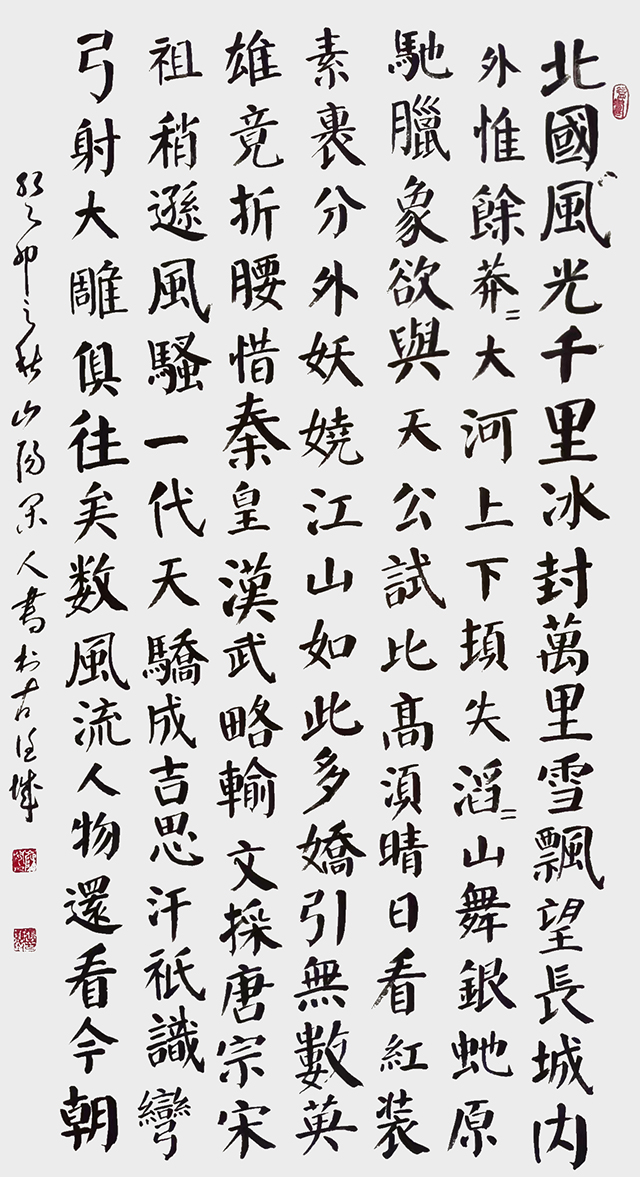 北國風光千里冰封萬里雪飄望長城内
外惟餘莽=大河上下頓失滔=山舞銀虵原
馳臘象欲與天公試比髙須晴日看紅装
素裹分外妖嬈江山如此多嬌引無數英
雄竟折腰惜秦皇漢武略輸文採唐宗宋
祖稍遜風騷一代天驕成吉思汗祇識彎
弓射大雕俱往矣数風流人物還看今朝
癸卯之秋山陽人書於古淮城